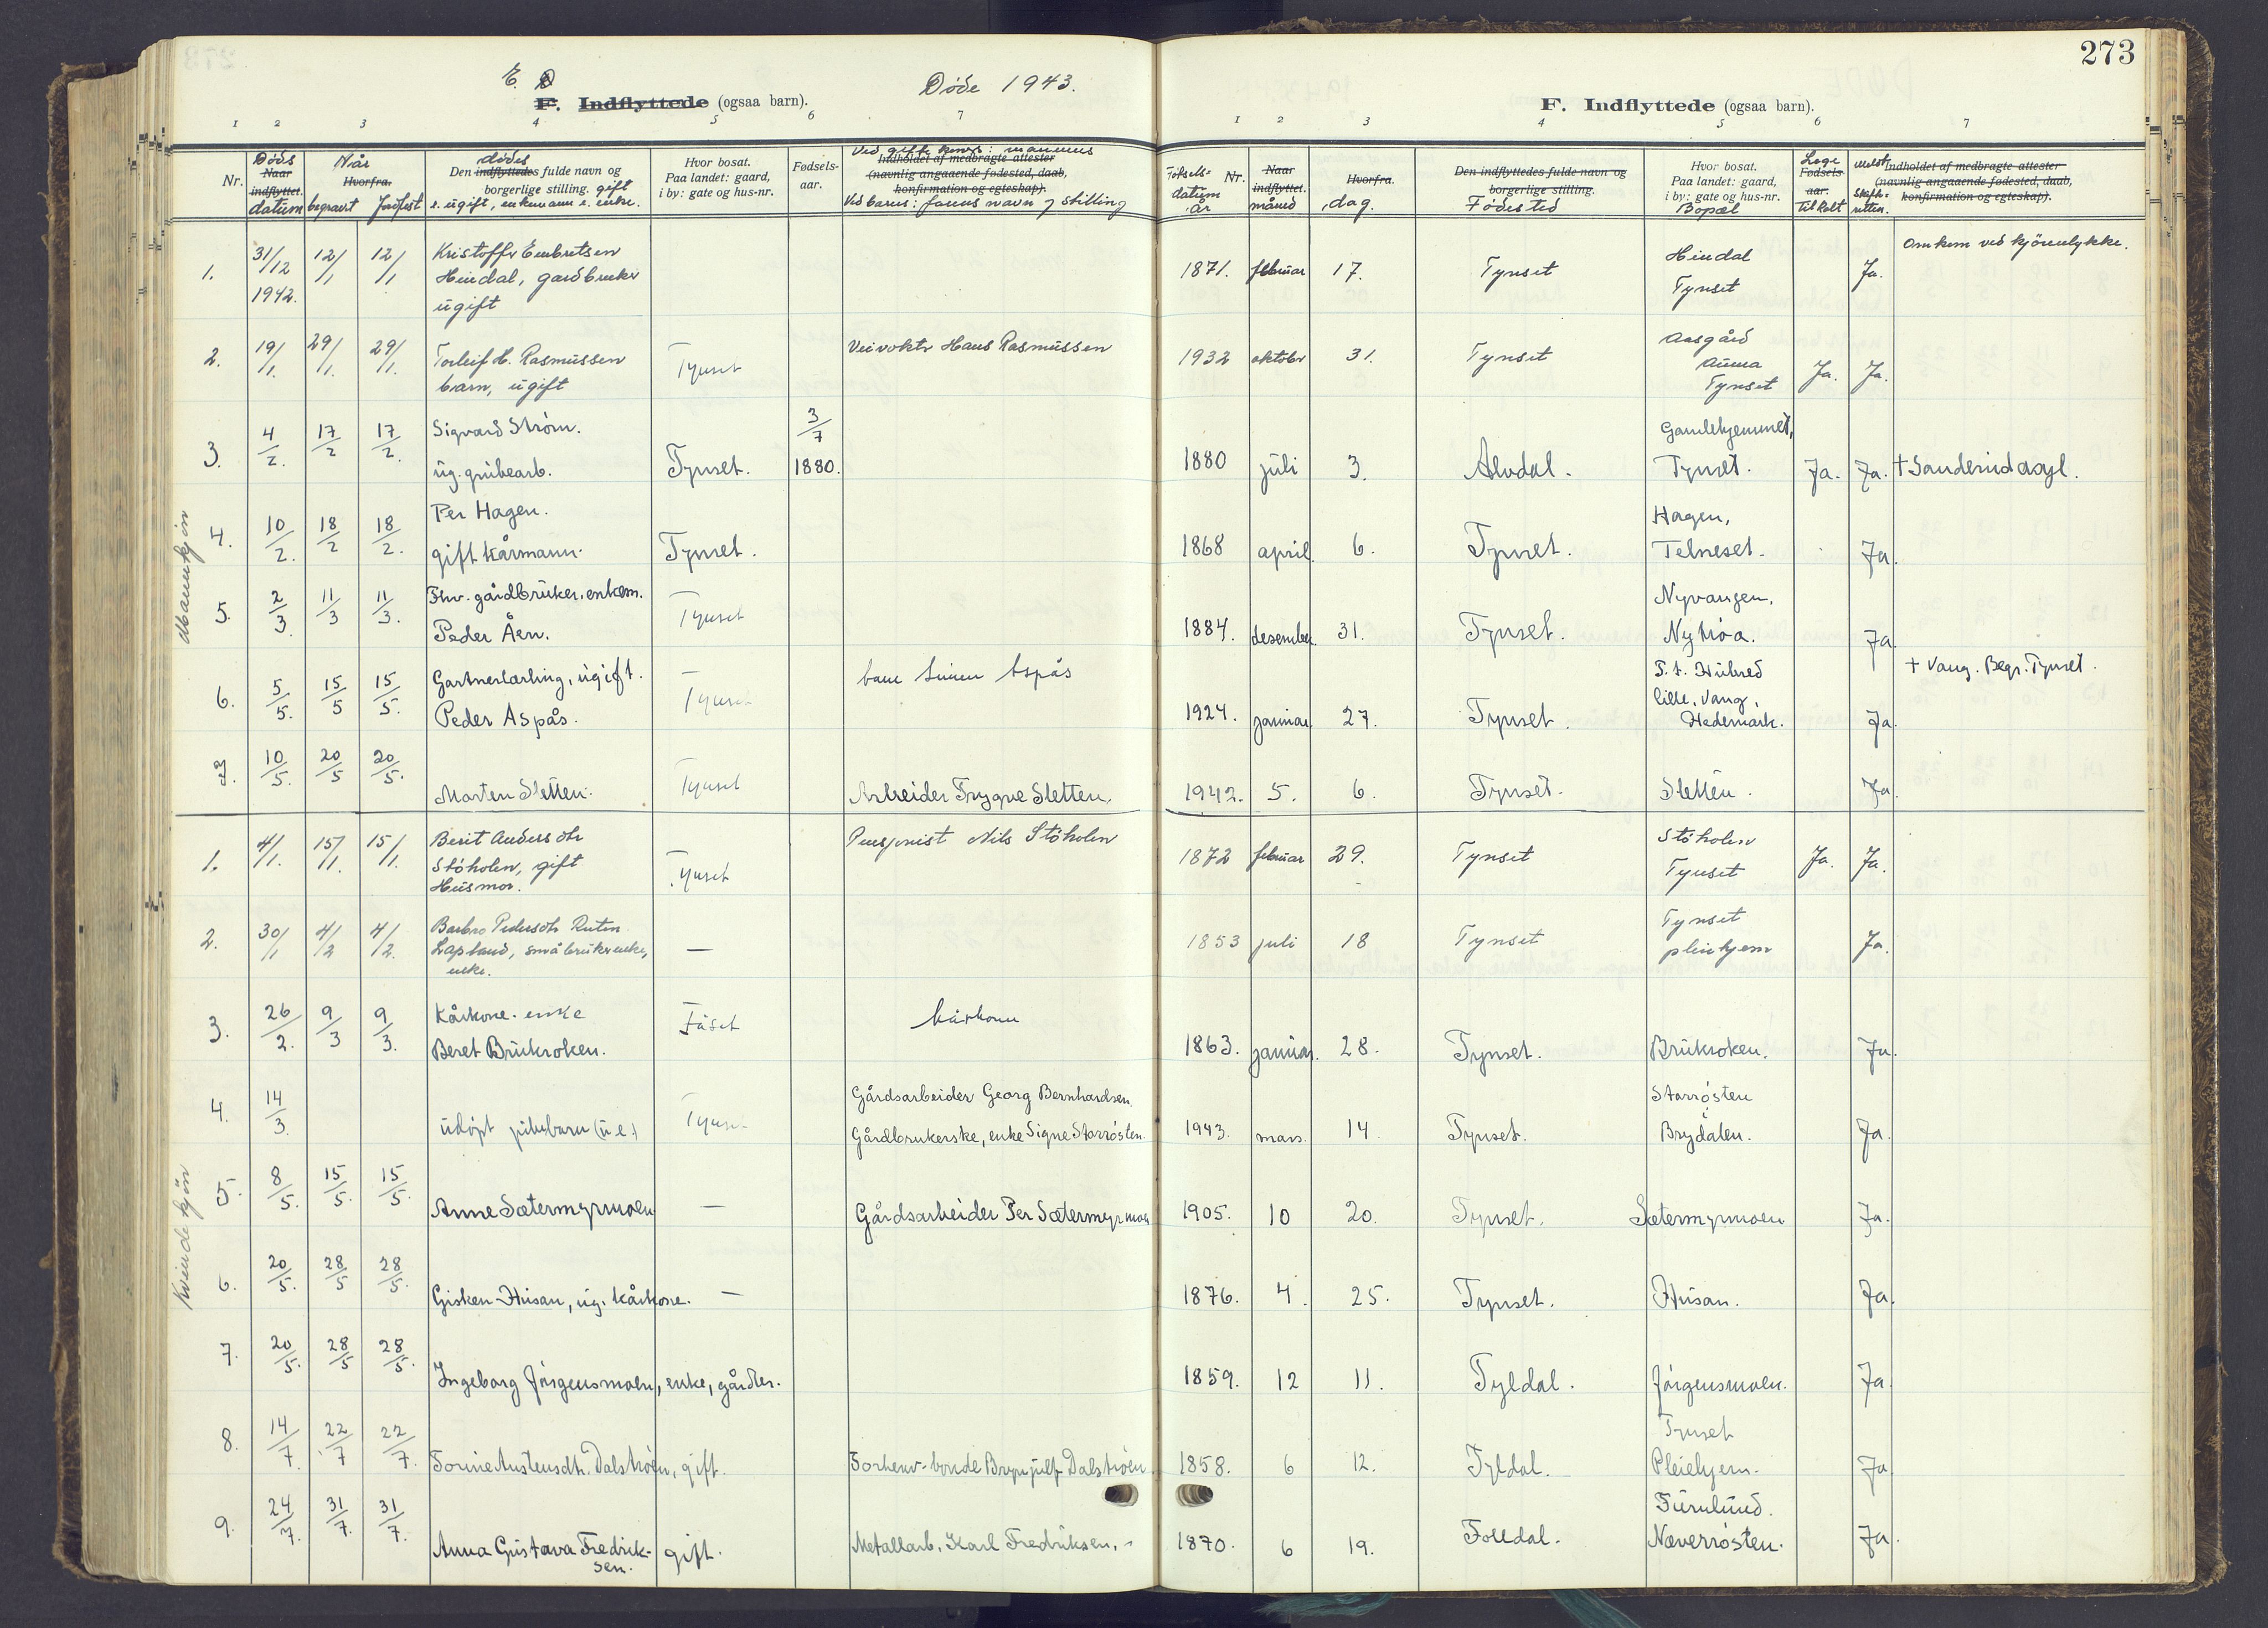 273
E. D
F. Indflyttede (ogsaa barn).
Døde 1943.
F. Indflyttede (ogsaa barn).
1 2 3 4 5 6 7
1 2 3 4 5 6 7
Nr.
Døds
Naar indflyttet.
datum
Når
Hvorfra.
begravt Jordfest
dødes
Den indflyttedes fulde navn og
borgerlige stilling. gift
e. ugift, enkemann e. enke.
Hvor bosat.
Paa landet: gaard,
i by: gate og hus-nr.
Fødsels-
aar.
Ved gifte kvner: mannens
Indholdet af medbragte attester
(navnlig angaaende fødested, daab,
konfirmation og egteskap).
Ved barns: farens navn og stilling
Fötsels-
datum
år
Nr.
Naar
indflyttet.
måned
Hvorfra.
dag.
Den indflyttedes fulde navn og
borgerlige stilling.
Fødested
Hvor bosat.
Paa landet: gaard,
i by: gate og hus-nr.
Bopæl
Lege
Fødsels-
aar.
tilkalt
Meldt
Skifte-
retten.
Indholdet af medbragte attester
(navnlig angaaende fødested, daab,
konfirmation og egteskap).
Mannkjøn
1. 31/12 1942. 12/1 12/1 Kristoffer Embretsen
Hindal, gardbruker
ugift
1871. februar 17. Tynset Hindal
Tynset Ja. Omkom ved kjöreulykke.
2. 19/1. 29/1. 29/1. Torleif H. Rasmussen
barn, ugift Tynset Veivokter Hans Rasmussen 1932 oktober 31. Tynset Aasgård
Auma
Tynset Ja. Ja.
3. 4/2. 17/2 17/2. Sigvard Strøm.
ug. grubearb. Tynset. 3/7 1880. 1880 juli 3. Alvdal. Gamlehjemmet,
Tynset. Ja. Ja. † Sanderud asyl.
4. 10/2. 18/2 18/2. Per Hagen.
gift kårmann. Tynset. 1868 april 6. Tynset. Hagen,
Telneset. Ja.
5. 2/3. 11/3 11/3. Fhv. gårdbruker, enkem.
Peder Åen. Tynset 1884. desember 31. Tynset. Nyvangen,
Nytrøa. Ja.
6. 5/5. 15/5 15/5. Gartnerlærling, ugift.
Peder Aspås. Tynset Aspås 1924. januar 27. Tynset. P.t.
lille, Vang,
Hedemark. Ja. † Vang. Begr. Tynset.
7. 10/5. 20/5 20/5. Morten Sletten. Tynset Arbeider Trygve Sletten. 1942. 5. 6. Tynset. Sletten. Ja.
Kvindekjøn
1. 4/1. 15/1. 15/1. Berit Andersdtr
Støholen, gift
Husmor. Tynset Pensjonist Nils Støholen 1872 februar 29. Tynset Støholen
Tynset Ja. Ja.
2. 30/1 4/2 4/2. Barbro Pedersdtr Ruten
Lapland, småbrukerenke,
enke. — 1853 juli 18 Tynset Tynset
pleiehjem Ja.
3. 26/2. 9/3 9/3. Kårkone. enke
Beret Brukroken. Fåset kårkone 1863. januar. 28. Tynset. Brukroken. Ja.
4. 14/3. udøpt pikebarn (u.e.) Tynset Gårdsarbeider Georg Bernhardsen.
Gårdbrukerske, enke Signe Storrøsten. 1943. mars. 14. Tynset. Storrøsten
i
Brydalen. Ja.
5. 8/5. 15/5. 15/5. Anne Sætermyrmoen — Gårdsarbeider Per Sætermyrmoen 1905. 10 20. Tynset. Sætermyrmoen Ja.
6. 20/5. 28/5 28/5. Gisken Husan, ug. kårkone. — 1876. 4. 25. Tynset. Husan. Ja.
7. 20/5. 28/5 28/5. Ingeborg Jørgensmoen, enke, gårdbr. 1859. 12 11. Tyldal. Jørgensmoen. Ja.
8. 14/7. 22/7 22/7. Torine Austensdtr. Dalstrøen, gift. Forhenv. bonde Brynjulf Dalstrøen 1858. 6 12. Tyldal. Tynset
Pleiehjem. Ja.
9. 24/7. 31/7. 31/7. Anna Gustava Fredrik-
sen. gift. Metallarb. Karl Fredriksen. 1870. 6 19. Folldal. Furulund.
Næverrøsten. Ja.